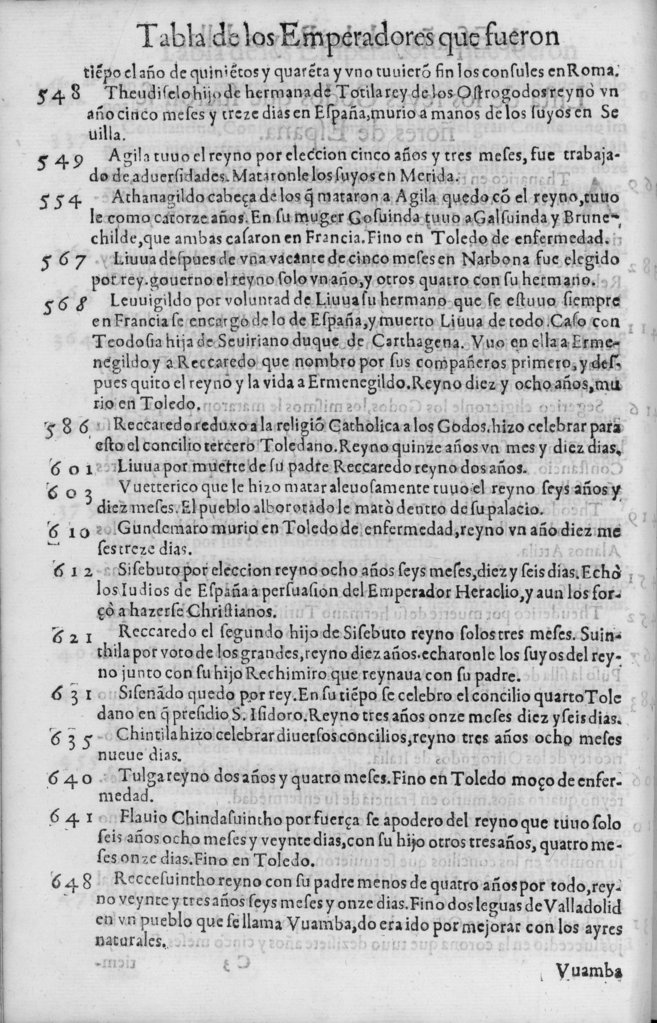 Tabla de los Emperadores que fueron
tiẽpo el año de quiniẽtos y quarẽta y vno tuuierõ fin los consules en Roma.
548 Theudiselo hijo de hermana de Totila rey de los Ostrogodos reynò vn
año cinco meses y treze dias en España, murio a manos de los suyos en Se
uilla.
549 Agila tuuo el reyno por eleccion cinco años y tres meses, fue trabaja-
do de aduersidades. Mataronle los suyos en Merida.
554 Athanagildo cabeça de los q̃ mataron a Agila quedo cõ el reyno, tuuo
le como catorze años. En su muger Gosuinda tuuo a Galsuinda y Brune-
childe, que ambas casaron en Francia. Fino en Toledo de enfermedad.
567 Liuua despues de vna vacante de cinco meses en Narbona fue elegido
por rey. gouerno el reyno solo vn año, y otros quatro con su hermano.
568 Leuuigildo por voluntad de Liuua su hermano que se estuuo siempre
en Francia se encargo de lo de España, y muerto Liuua de todo. Caso con
Teodosia hija de Seuiriano duque de Carthagena. Vuo en ella a Erme-
negildo y a Reccaredo que nombro por sus compañeros primero, y des-
pues quito el reyno y la vida a Ermenegildo. Reyno diez y ocho años, mu
rio en Toledo.
586 Reccaredo reduxo a la religiõ Catholica a los Godos. hizo celebrar para
esto el concilio tercero Toledano. Reyno quinze años vn mes y diez dias.
601 Liuua por muerte de su padre Reccaredo reyno dos años.
603 Vuetterico que le hizo matar aleuosamente tuuo el reyno seys años y
diez meses. El pueblo alborotado le matò dentro de su palacio.
610 Gundemaro murio en Toledo de enfermedad, reyno vn año diez me
ses treze dias.
612 Sisebuto por eleccion reyno ocho años seys meses, diez y seis dias. Echò
los Iudios de España a persuasion del Emperador Heraclio, y aun los for-
çò a hazerse Christianos.
621 Reccaredo el segundo hijo de Sisebuto reyno solos tres meses. Suin-
thila por voto de los grandes, reyno diez años. echaronle los suyos del rey-
no junto con su hijo Rechimiro que reynaua con su padre.
631 Sisenãdo quedo por rey. En su tiẽpo se celebro el concilio quarto Tole
dano en q̃ presidio S. Isidoro. Reyno tres años onze meses diez y seis dias.
635 Chintila hizo celebrar diuersos concilios, reyno tres años ocho meses
nueue dias.
640 Tulga reyno dos años y quatro meses. Fino en Toledo moço de enfer-
medad.
641 Flauio Chindasuintho por fuerça se apodero del reyno que tuuo solo
seis años ocho meses y veynte dias, con su hijo otros tres años, quatro me-
ses onze dias. Fino en Toledo.
648 Reccesuintho reyno con su padre menos de quatro años por todo, rey-
no veynte y tres años seys meses y onze dias. Fino dos leguas de Valladolid
en vn pueblo que se llama Vuamba, do era ido por mejorar con los ayres
naturales.
Vuamba